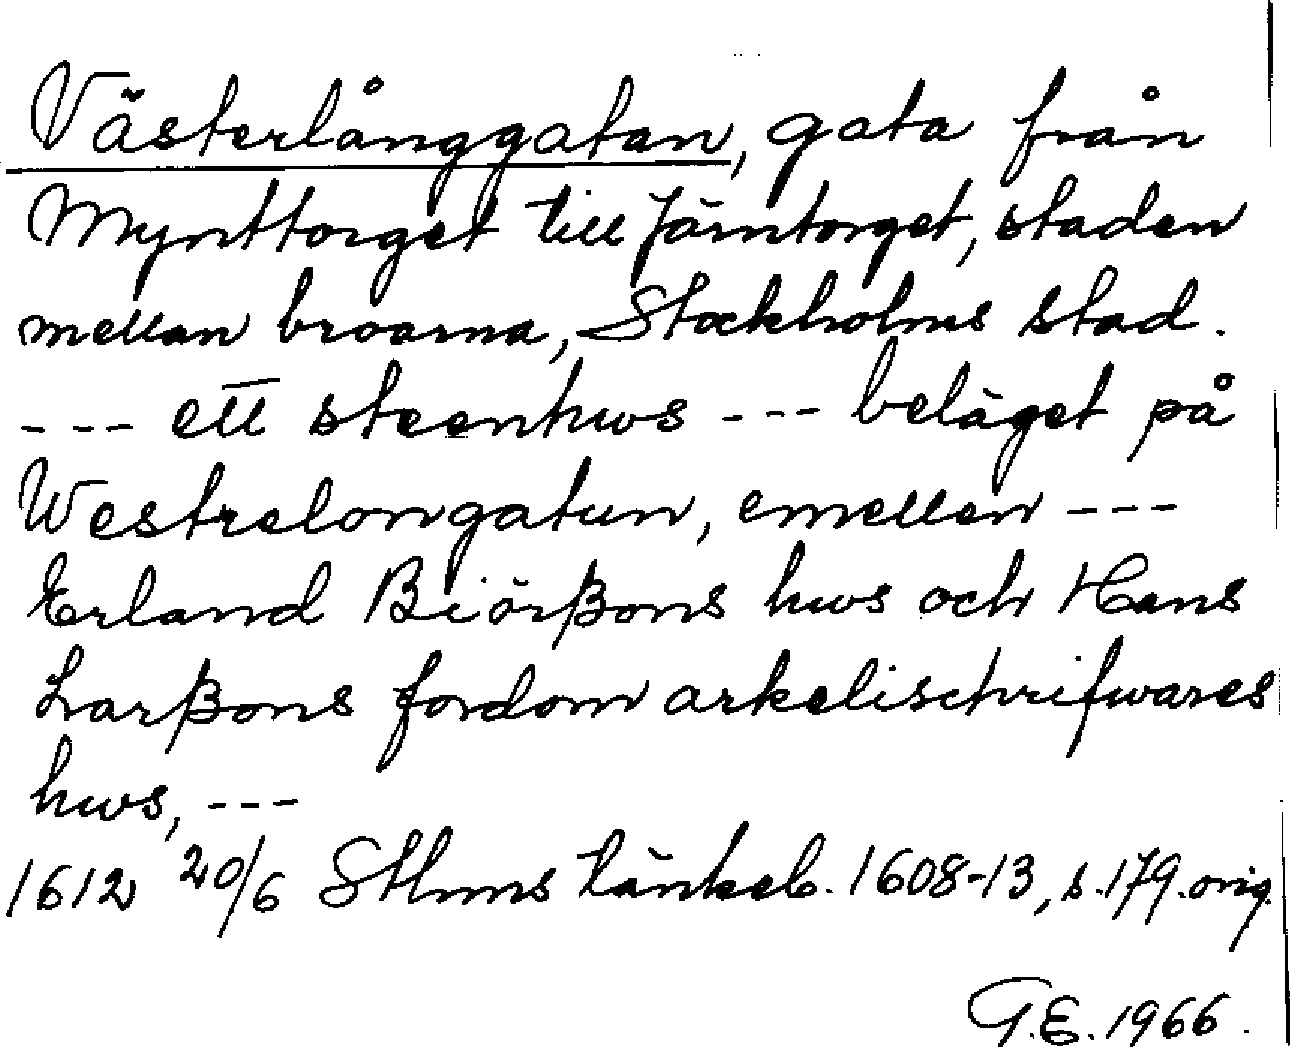 Västerlånggatan, gata från
Mynttorget till Järntorget, staden
mellan broarna, Stockholms stad.
--- ett steenhws --- beläget på
Westrelongatun, emellen ---
Erland Biörßons hws och Hans
Larßons fordom arkelischrifwares
hws, ---
1612 20/6 Sthms tänkeb. 1608-13, s. 179. orig.
G.E. 1966.